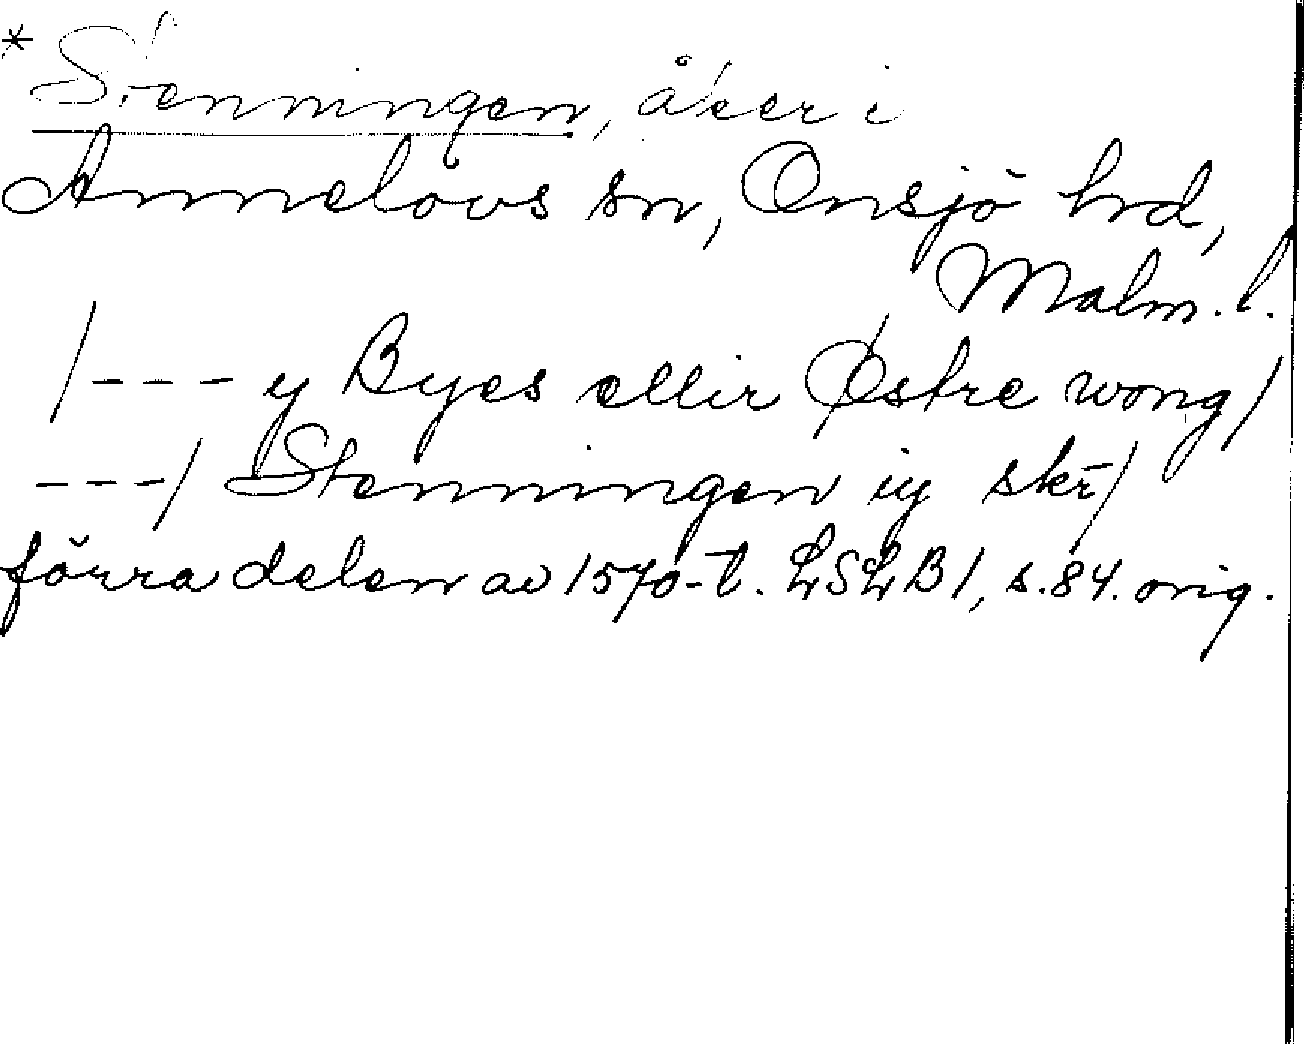 * Stenningen, åker i
Annelövs sn, Onsjö hrd,
Malm. l.
/--- y Byes ellir Østre wong/
---/ Stenningen iij skr̄/
förra delen av 1570-t. LSLB1, s.84. orig.